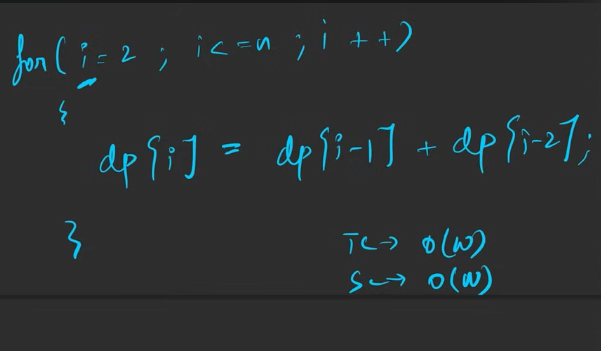 for( i = 2 ; i <= n ; i ++)
{
dp[i] = dp[i-1] + dp[i-2];
}
TC → O(N)
SC → O(N)